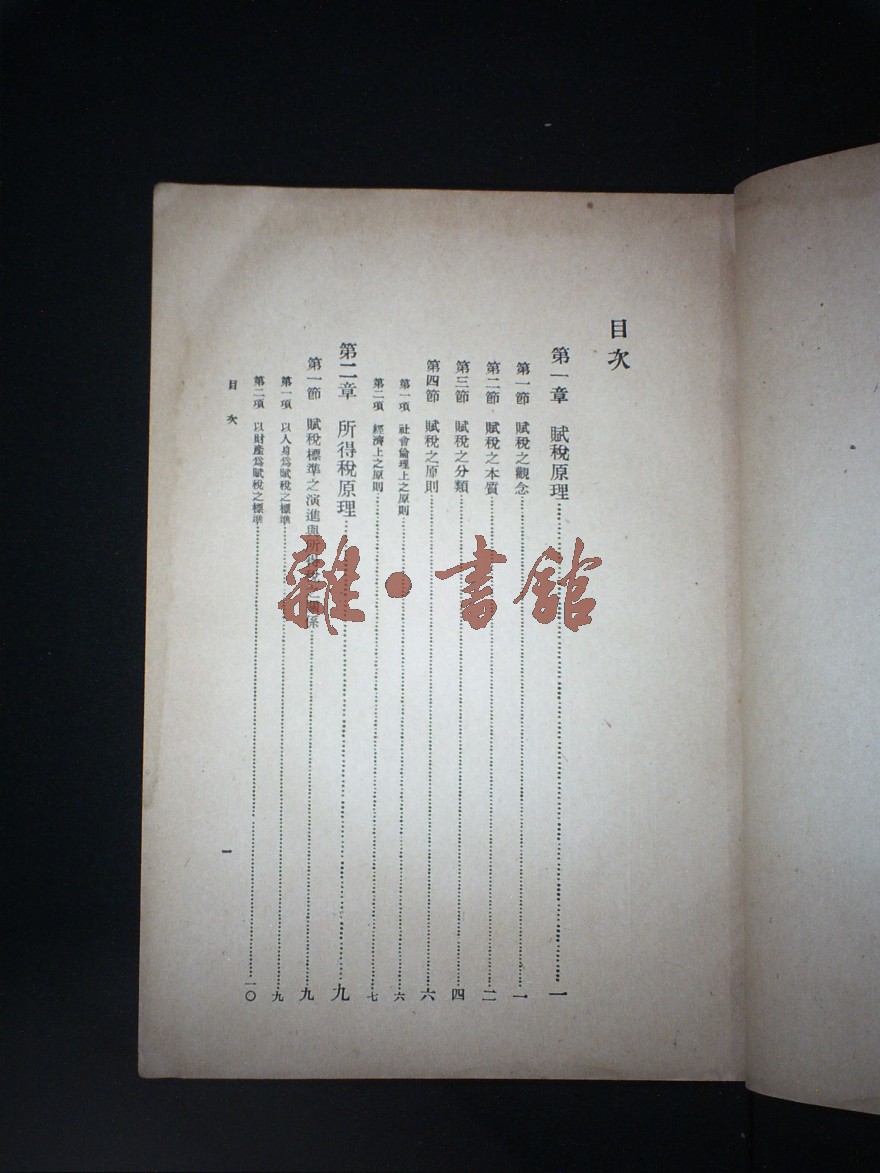 目次
第一章 賦稅原理……一
第一節 賦稅之觀念……一
第二節 賦稅之本質……二
第三節 賦稅之分類……四
第四節 賦稅之原則……六
第一項 社會倫理上之原則……六
第二項 經濟上之原則……七
第二章 所得稅原理……九
第一節 賦稅標準之演進與所得稅之關係……九
第一項 以人身爲賦稅之標準……九
第二項 以財產爲賦稅之標準……一〇
目次
一
雜·書館